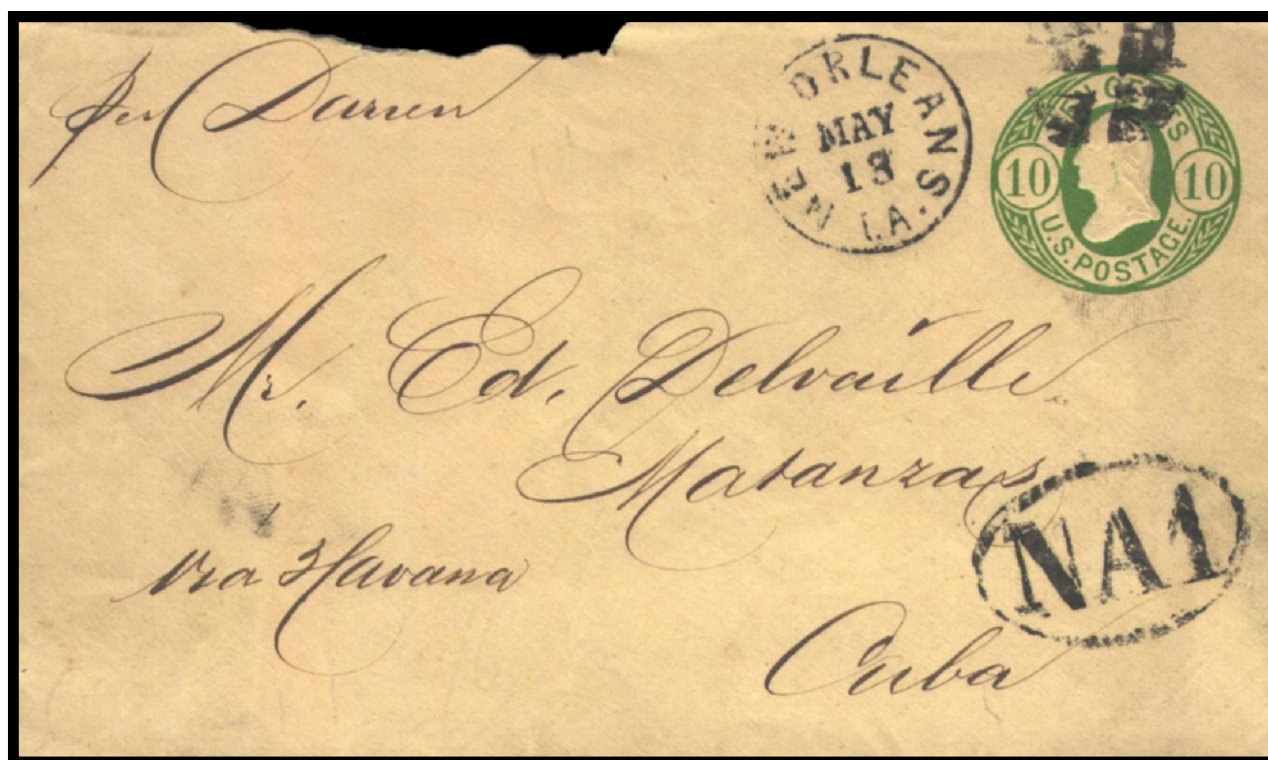 per Darien
NEW ORLEANS LA.
MAY
13
TEN CENTS
10 10
U.S. POSTAGE.
Mr. Ed. Delvaille.
Matanzas
NA1
via Havana
Cuba